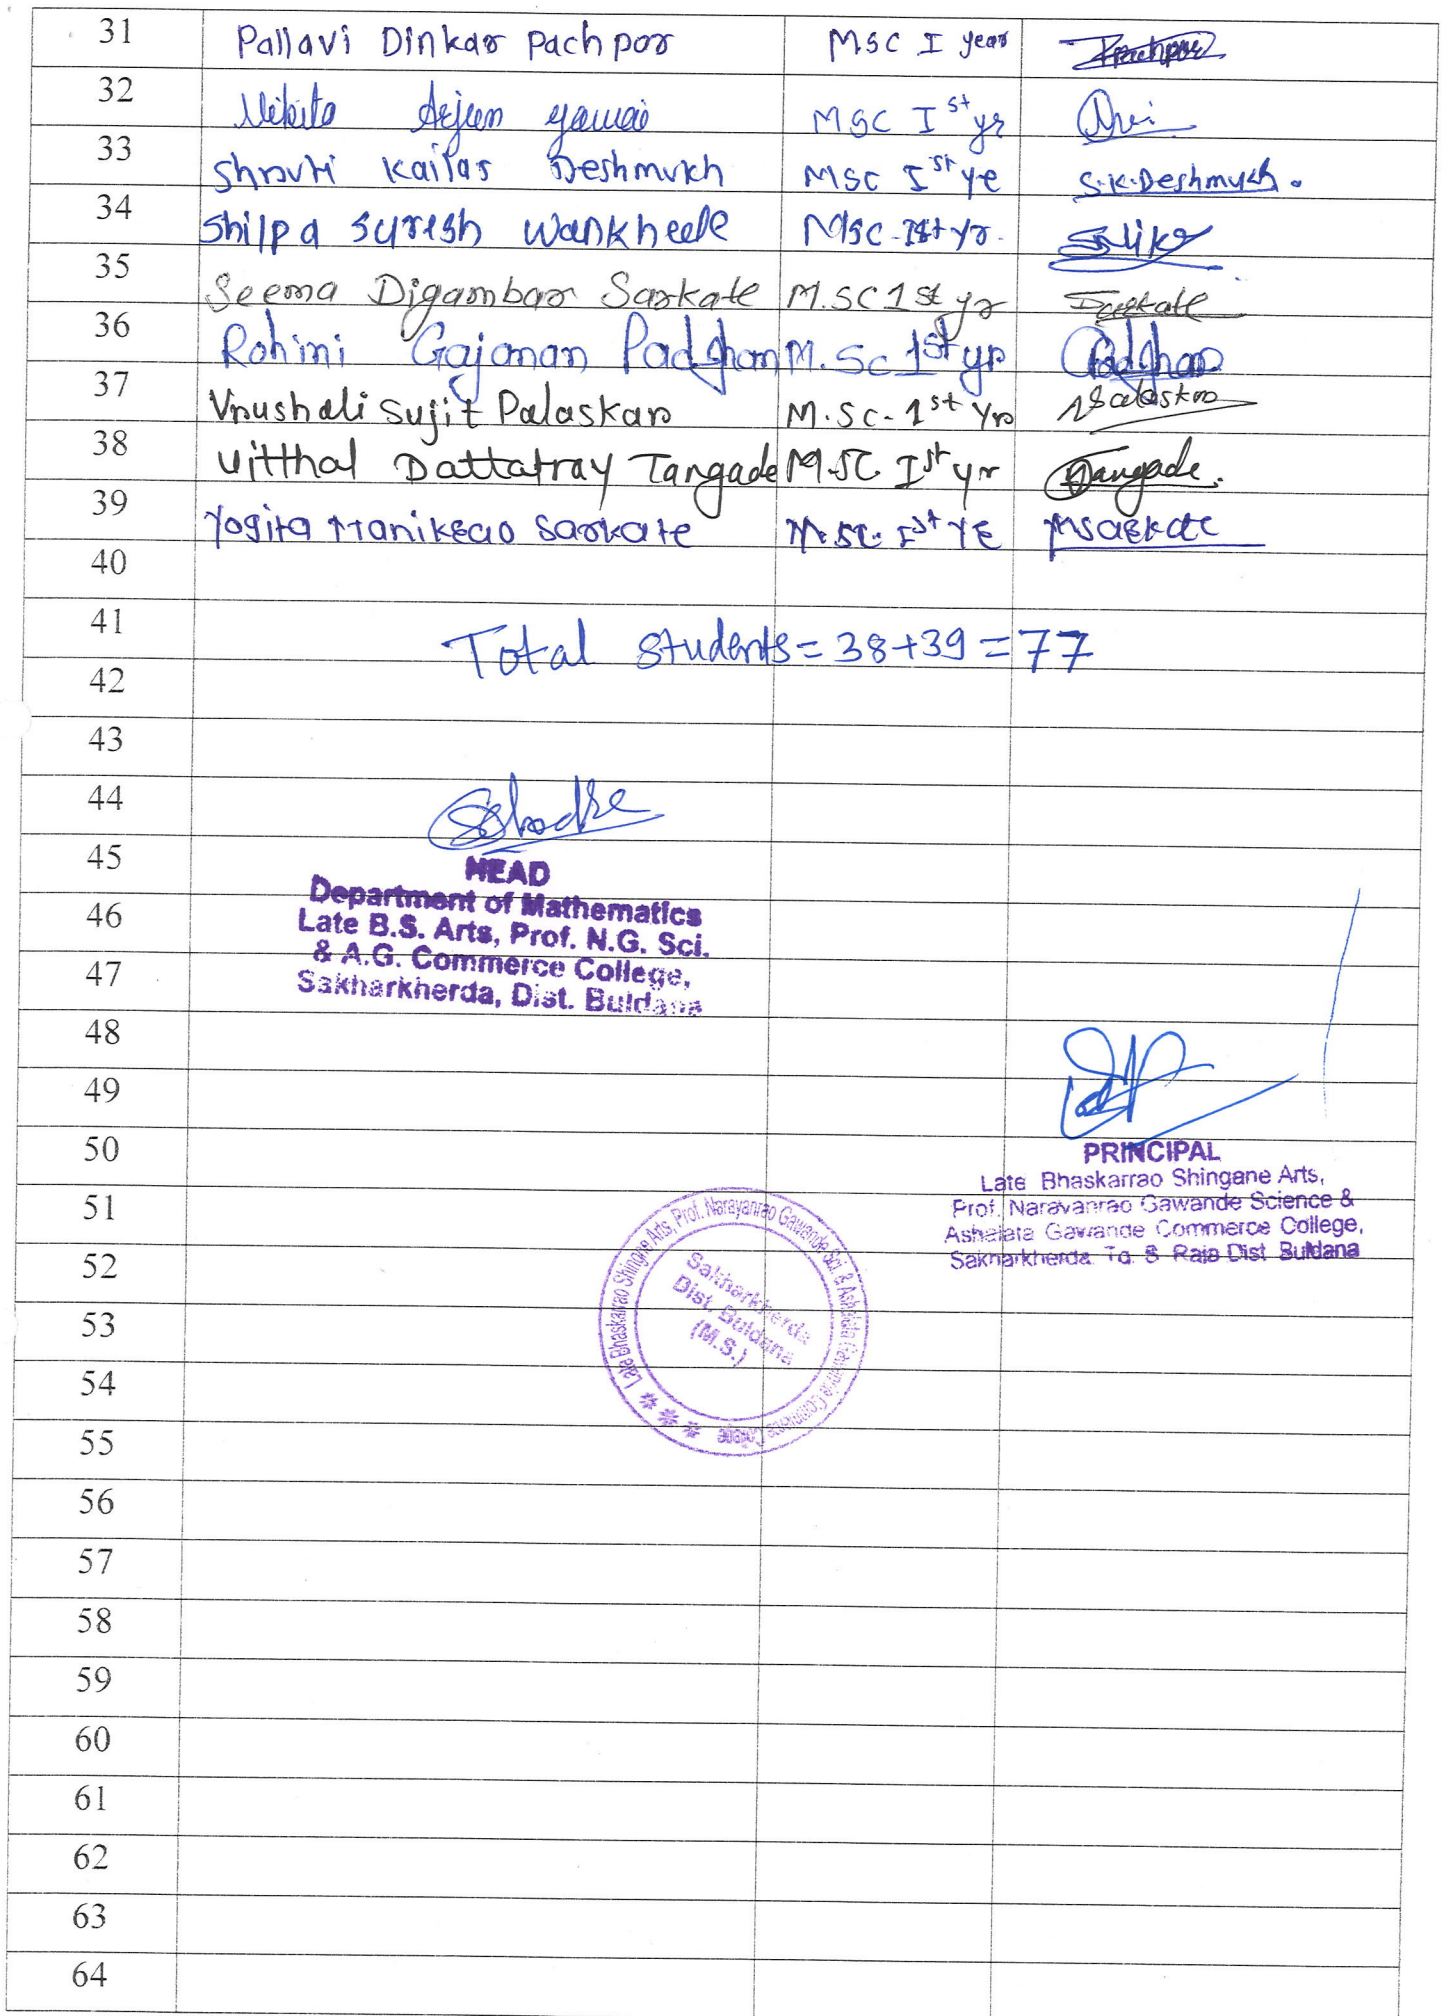 31 Pallavi Dinkar Pachpor MSC I year Pachpor
32 Nikita Arjun MSC I st yr
33 Shruti Kailas Deshmukh MSC I st ye S.K.Deshmukh.
34 Shilpa Suresh Wankhede MSC-Ist yr.
35 Seema Digambar Sarkate M.SC 1st yr Sarkate
36 Rohini Gajanan Padghan M.Sc 1st yr Padghan
37 Vrushali Sujit Palaskar M.Sc-1st yr Palaskar
38 Vitthal Dattatray Tangade M.SC Ist yr Tangade.
39 Yogita Manikrao Sarkate M.SC. Ist YE MSarkate
40
41 Total students = 38+39 = 77
42
43
44
45 HEAD
Department of Mathematics
46 Late B.S. Arts, Prof. N.G. Sci.
& A.G. Commerce College,
47 Sakharkherda, Dist. Buldana
48
49
50 PRINCIPAL
Late Bhaskarrao Shingane Arts,
51 Prof. Narayanrao Gawande Science &
Ashalata Gawande Commerce College,
52 Sakharkherda Tq. S Raja Dist Buldana
Late Bhaskarrao Shingne Arts, Prof. Narayanrao Gawande Sci. & Ashalata Gawande Commerce College
Sakharkherda
Dist. Buldana
(M.S.)
53
54
55
56
57
58
59
60
61
62
63
64